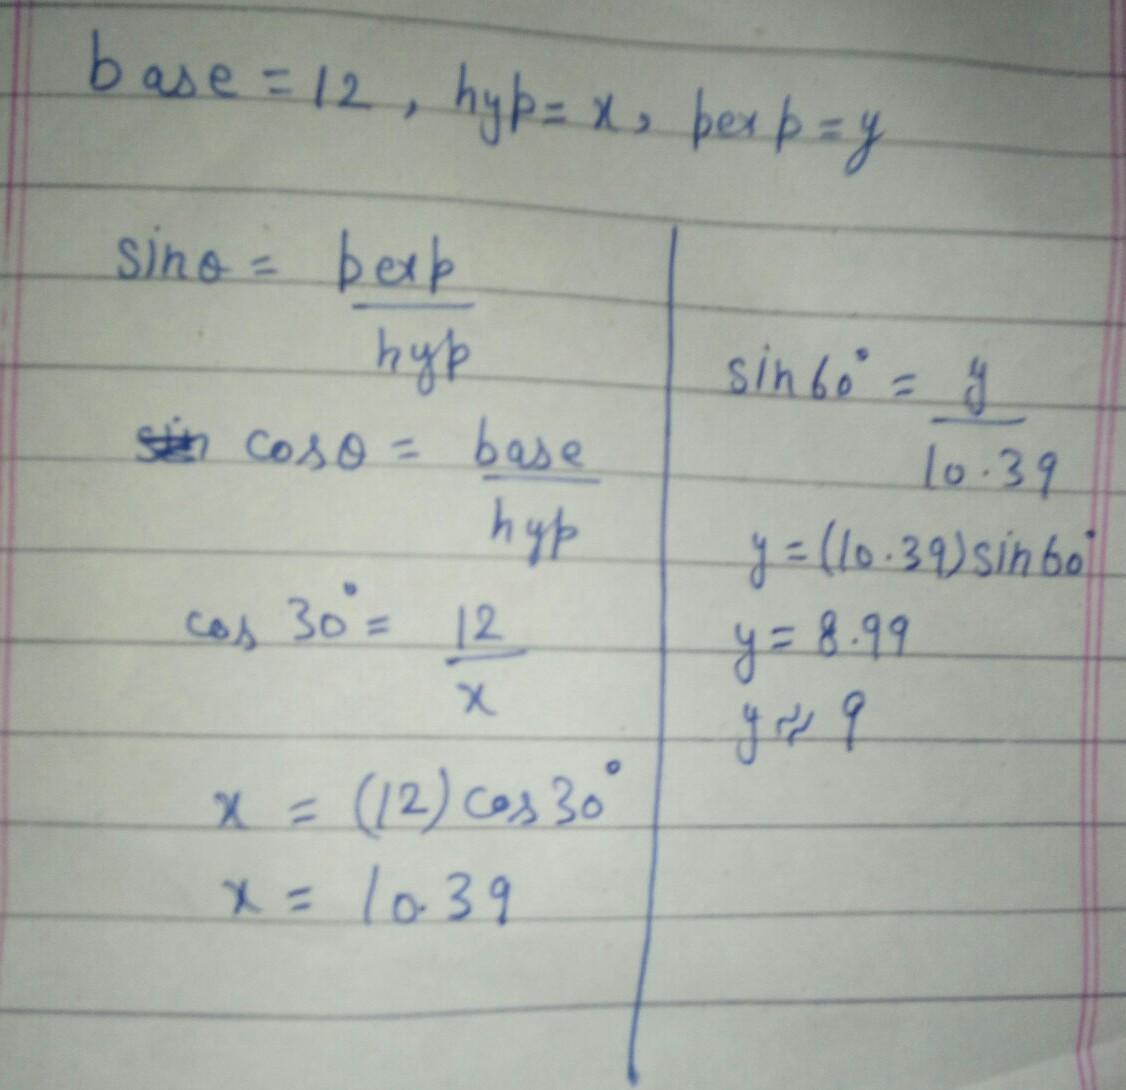 base = 12, hyp = x, perp = y
sinθ = perp
hyp
cosθ = base
hyp
cos 30° = 12
x
x = (12) cos 30°
x = 10.39
sin 60° = y
10.39
y = (10.39) sin 60°
y = 8.99
y ≈ 9